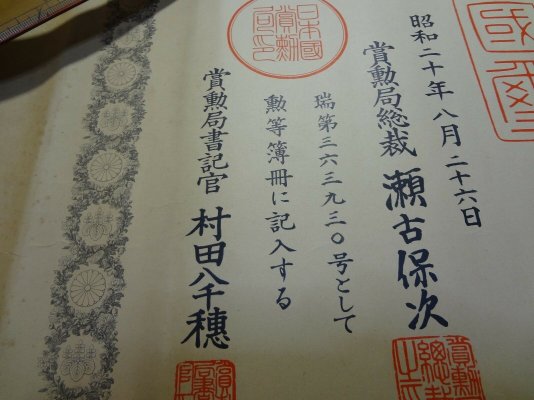 國璽
昭和二十年八月二十六日
賞勲局総裁 瀬古保次
瑞第三六三九三〇号として
勲等簿冊に記入する
賞勲局書記官 村田八千穂
日本國
賞勲
局印